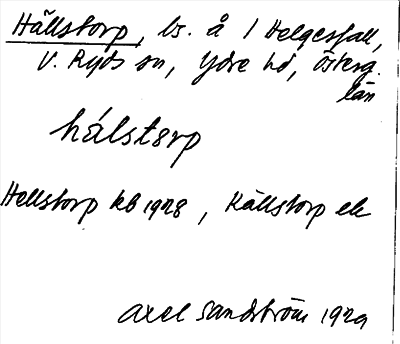 Hällstorp, ls. å 1 Helgesfall,
V. Ryds sn, Ydre hd, Österg.
län
hálstorp
Hellstorp kb 1928, Källstorp ek
Axel Sandström 1929